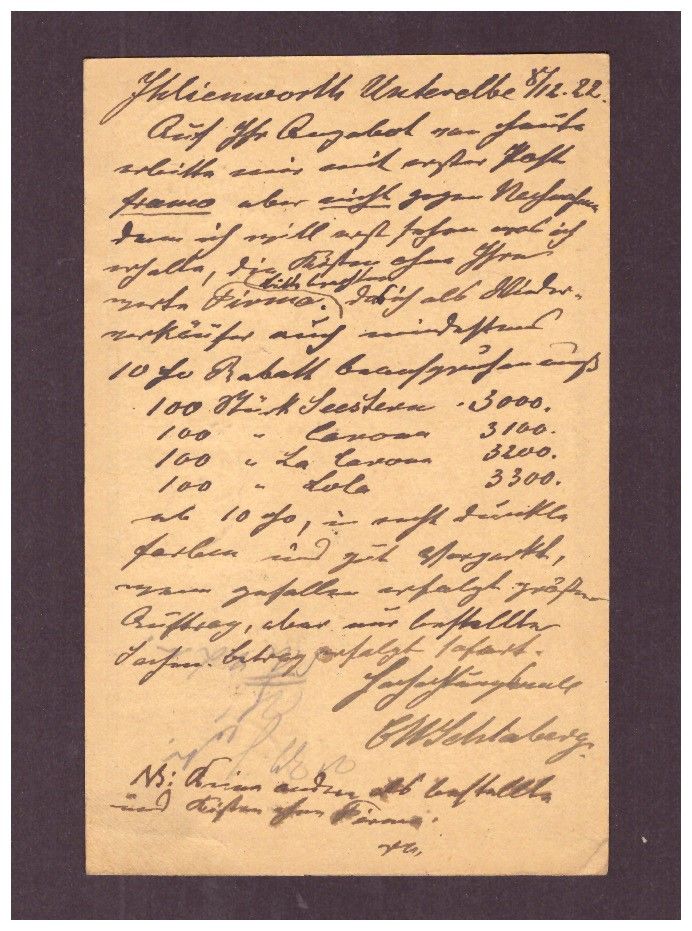 Ihlienworth Unterelbe 8/12.22.
Auf Ihr Angebot von heute
erbitte mir mit erster Post
franco aber nicht gegen Nachnahme
denn ich will erst sehen was ich
erhalte, die Kisten ohne Ihre
werte Firma. da ich als Wieder-
verkäufer auch mindestens
10 % Rabatt beanspruchen muß
100 Stück Seestern 3000.
100 " Carona 3100.
100 " La Carona 3200.
100 " Lola 3300.
ab 10 %, in recht dunkle
farben und gut verpackt,
wenn gefallen erfolgt größer
Auftrag, aber nur bestellte
Sachen. betrag erfolgt sofort.
Hochachtungsvoll
NB: Keine andere als bestellte
und Kisten ohne Firma.